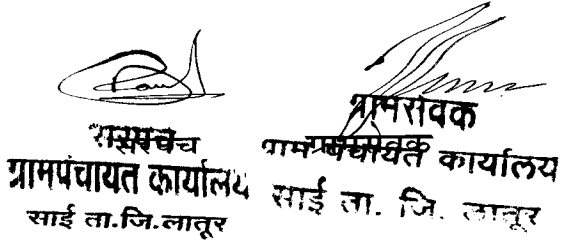 सरपंच
ग्रामपंचायत कार्यालय
साई ता.जि.लातूर
ग्रामसेवक
ग्रामसेवक
ग्रामपंचायत कार्यालय
साई ता. जि. लातूर